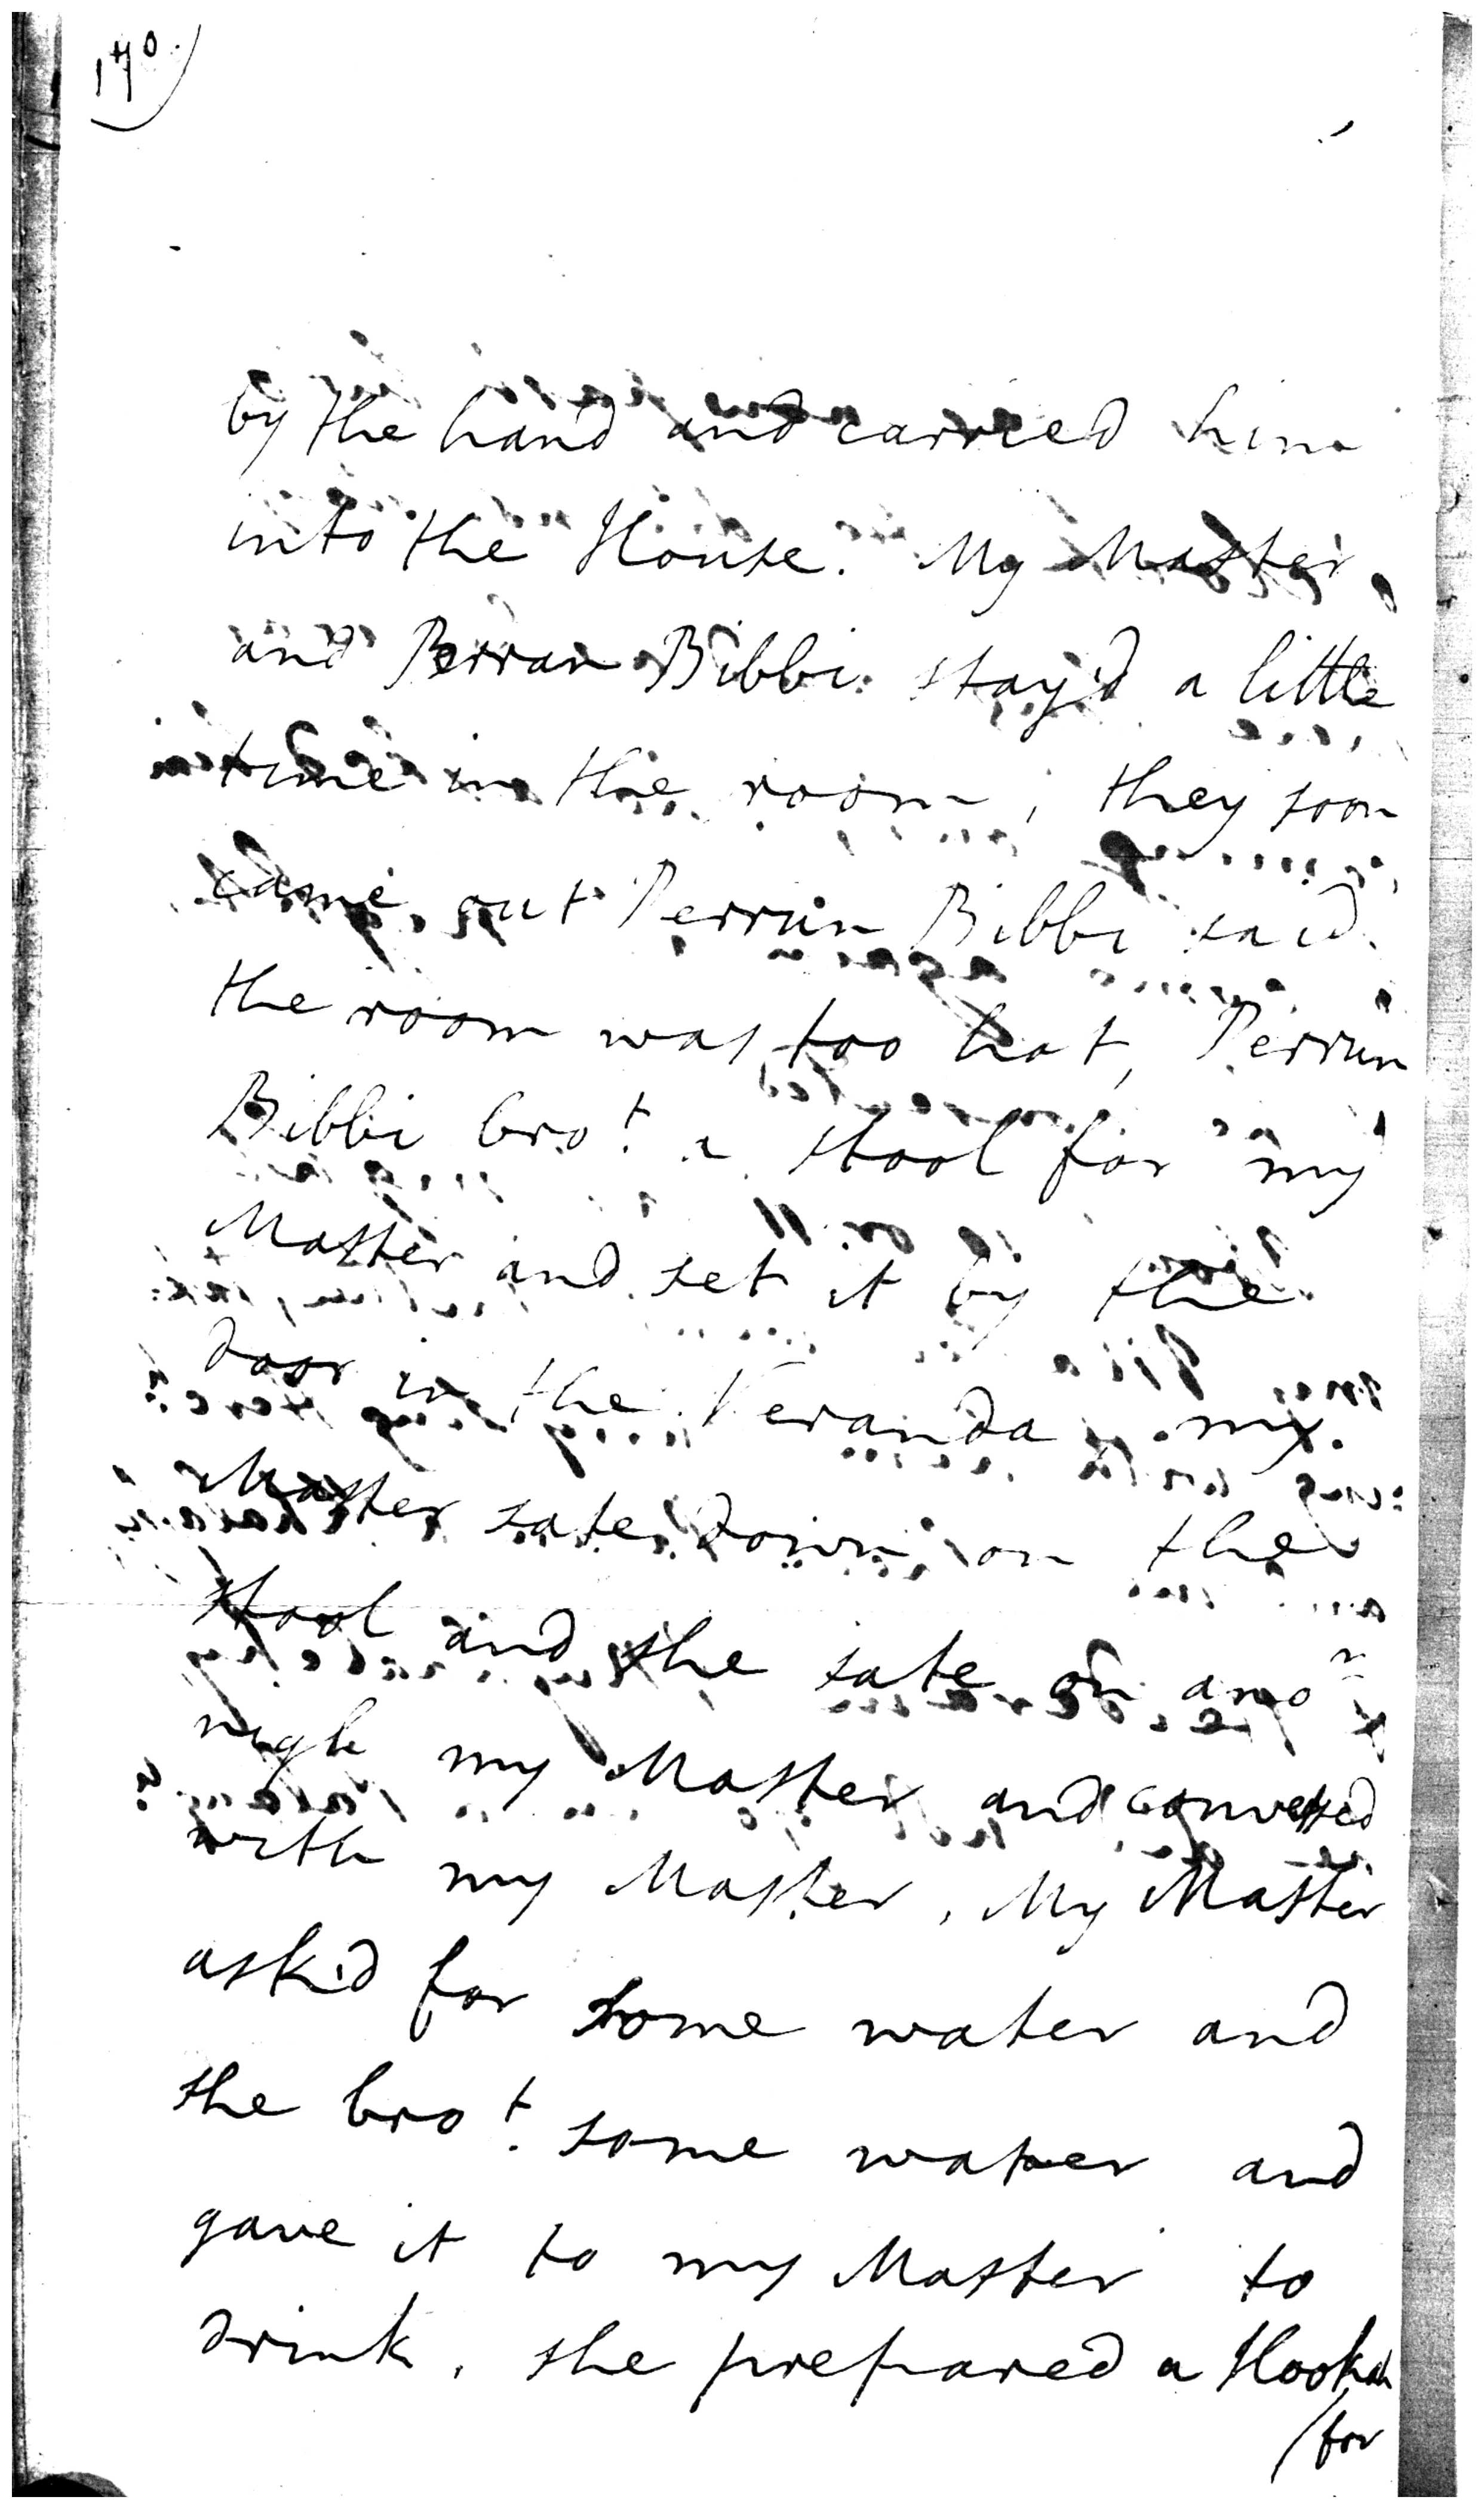 170
by the hand and carried him
into the House. My Master
and Perran Bibbi stay'd a little
time in the room, they soon
came out Perrun Bibbi said
the room was too hot, Perrun
Bibbi bro.t a stool for my
Master and set it by the
door in the Veranda my
Master sate down on the
stool and she sate on ano.r
nigh my Master and conversed
with my Master, My Master
ask'd for some water and
she bro.t some water and
gave it to my Master to
drink, she prepared a Hookah
/for